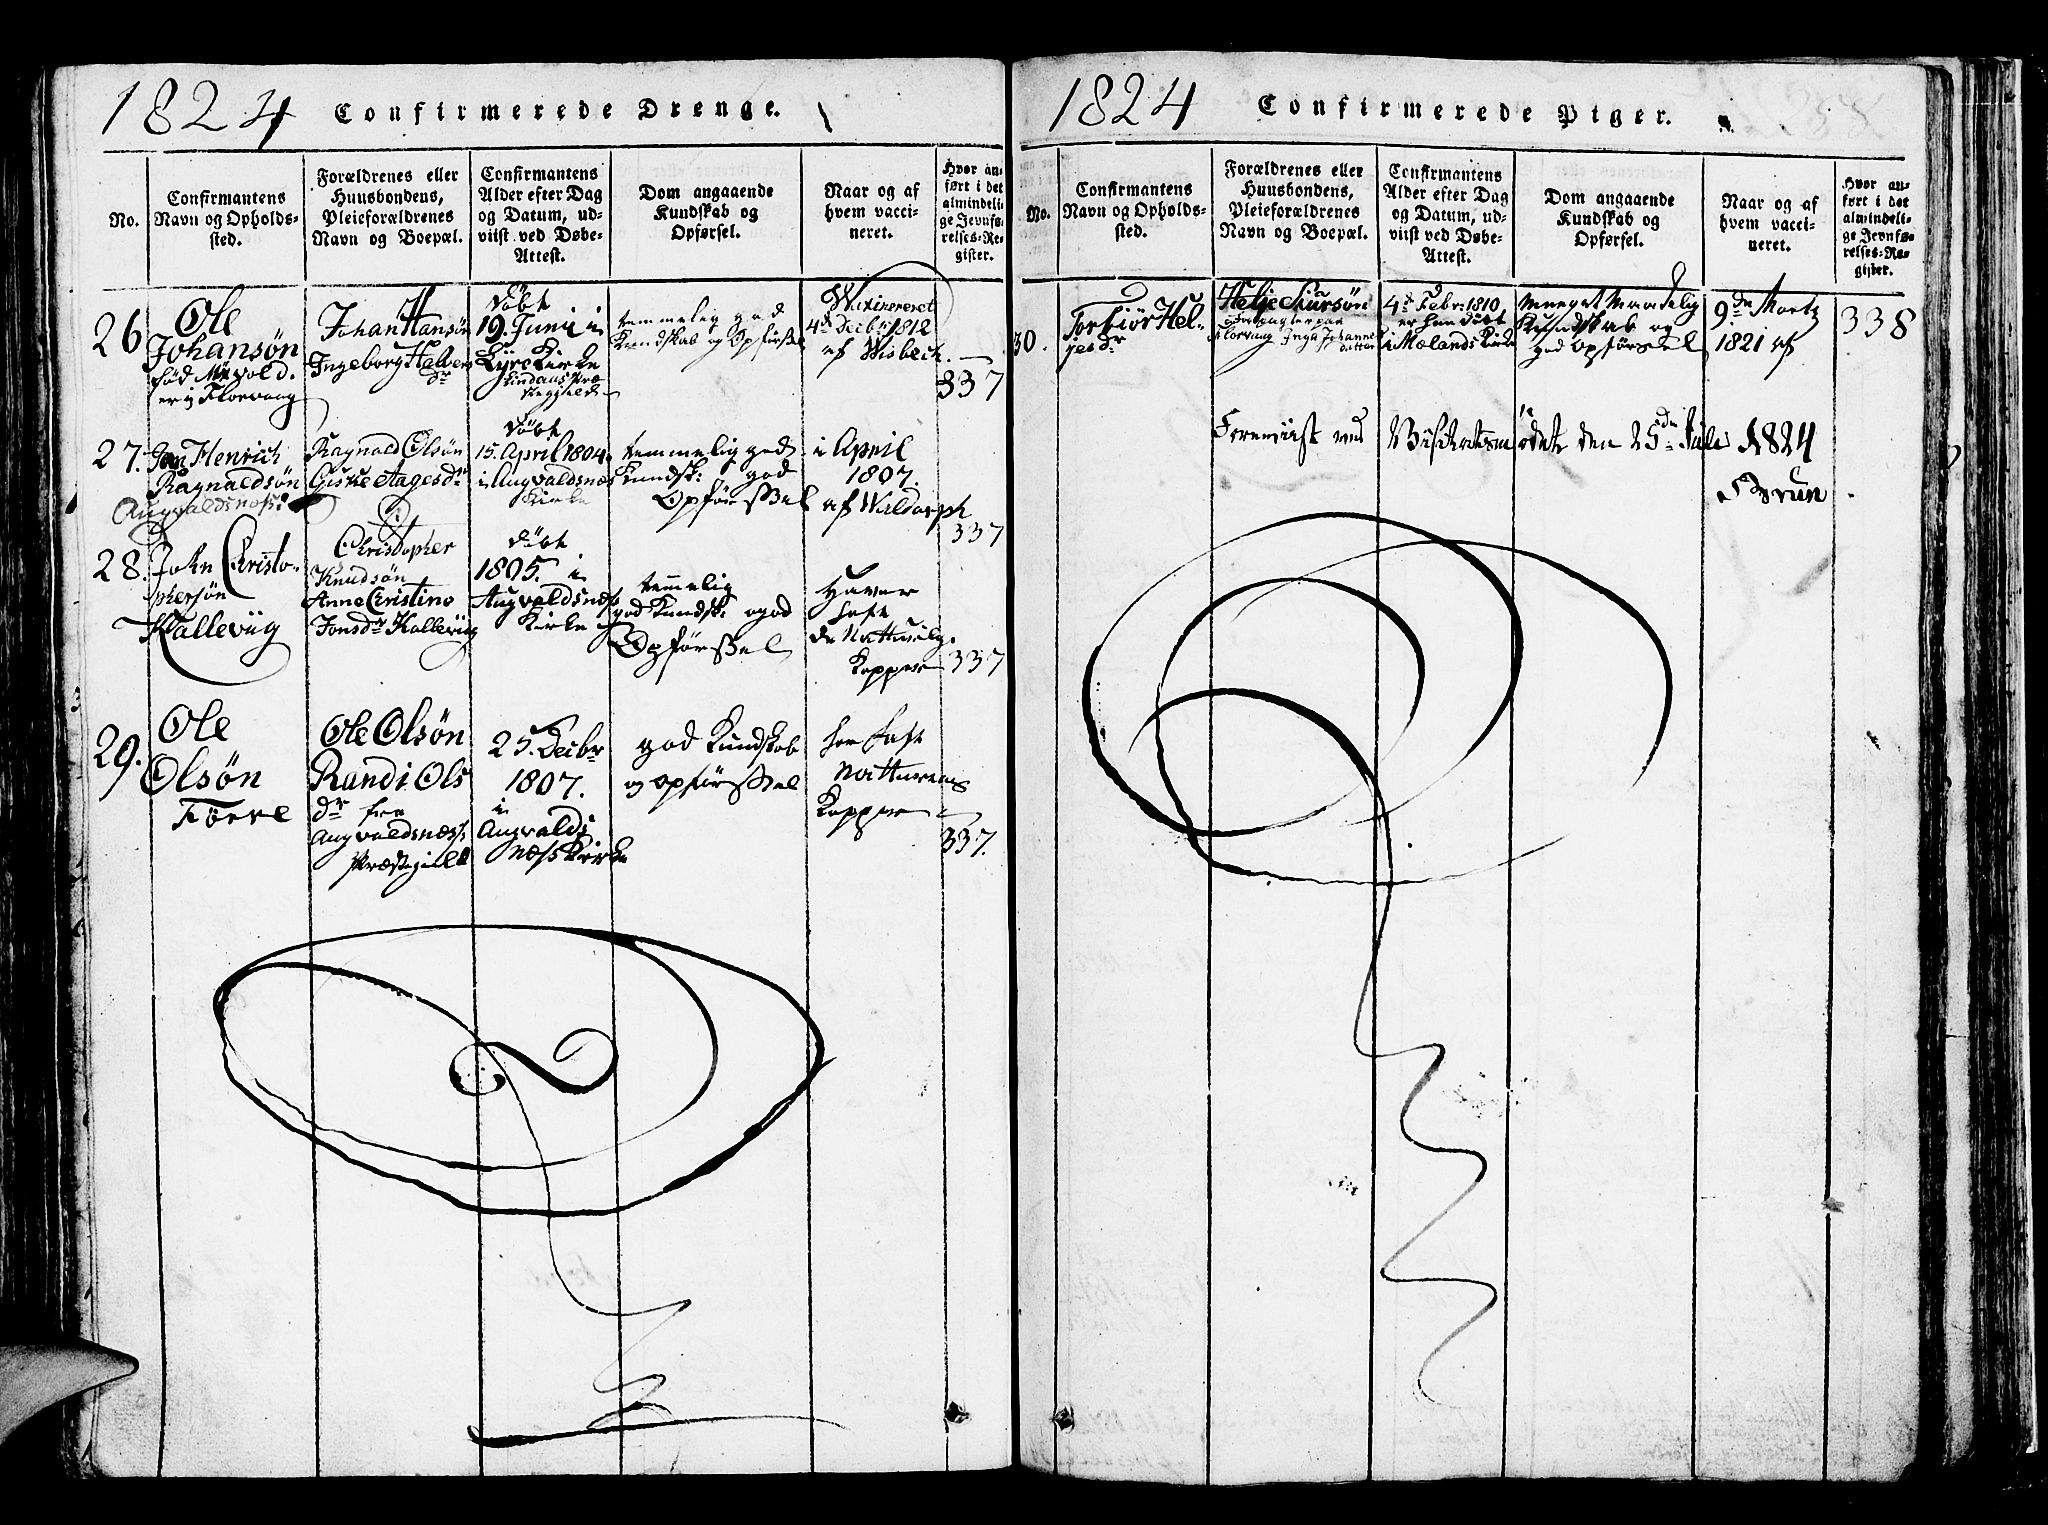 1824 Confirmerede Drenge.
No.
Confirmantens
Navn og Opholds-
sted.
Forældrenes eller
Huusbondens,
Pleieforældrenes
Navn og Boepæl.
Confirmantens
Alder efter Dag
og Datum, ud-
viist ved Døbe-
Attest.
Dom angaaende
Kundskab og
Opførsel.
Naar og af
hvem vacci-
neret.
Hvor an-
ført i det
almindeli-
ge Jevnfø-
relses-Re-
gister.
26
Ole
Johansøn
fød
er i Florvaag
Johan Hansøn
Ingeborg Halvers
dr
Døbt
19. Juni i
Kirke
temmelig god
Kundskab og Opførssel
Vaxineret
4de Febr: 1812
af Wisbech
337
27.
Jan Henrich
Ragnaldsøn
Augvaldsnæss
Ragnald Olsøn
Giske Aagesdr
Døbt
15. April 1804
i Augvaldsnæs
Kirke
temmelig god
Kundsk: god
Opførssel
i April
1807.
af Waldorph
337
28.
John Christo-
phersøn
Kallevug
Christopher
Knudsøn
Anne Christine
Jonsdr Kallevug
Døbt
1805. i
Augvaldsnæs
Kirke
temmelig
god Kundsk: og god
Opførssel
Haver
haft
de Nattuerlg.
Kopper
337
29.
Ole
Olsøn
Førre
Ole Olsøn
Randi Ols
dr fra
Augvaldsnæss
Præstegield
25. Decbr
1807.
i
Augvalds
næss Kirke
god Kundskab
og opførssel
har haft
Kopper
337.
1824 Confirmerede Piger.
No.
Confirmantens
Navn og Opholds-
sted.
Forældrenes eller
Huusbondens,
Pleieforældrenes
Navn og Boepæl.
Confirmantens
Alder efter Dag
og Datum, ud-
viist ved Døbe-
Attest.
Dom angaaende
Kundskab og
Opførsel.
Naar og af
hvem vacci-
neret.
Hvor an-
ført i det
almindeli-
ge Jevnfø-
relses-Re-
gister.
30.
Torbiør Hel-
jesdr
Helje Siursøn
Florvaag Inga Johannes
datter
4de Febr: 1810
er hun døbt
i Mælands Kirke
meeget maadelig
Kundskab og
god opførssel
9de Martz
1821 af
338
Foreviist ved Visitatsen Mødet den 25de Juli 1824
Brun